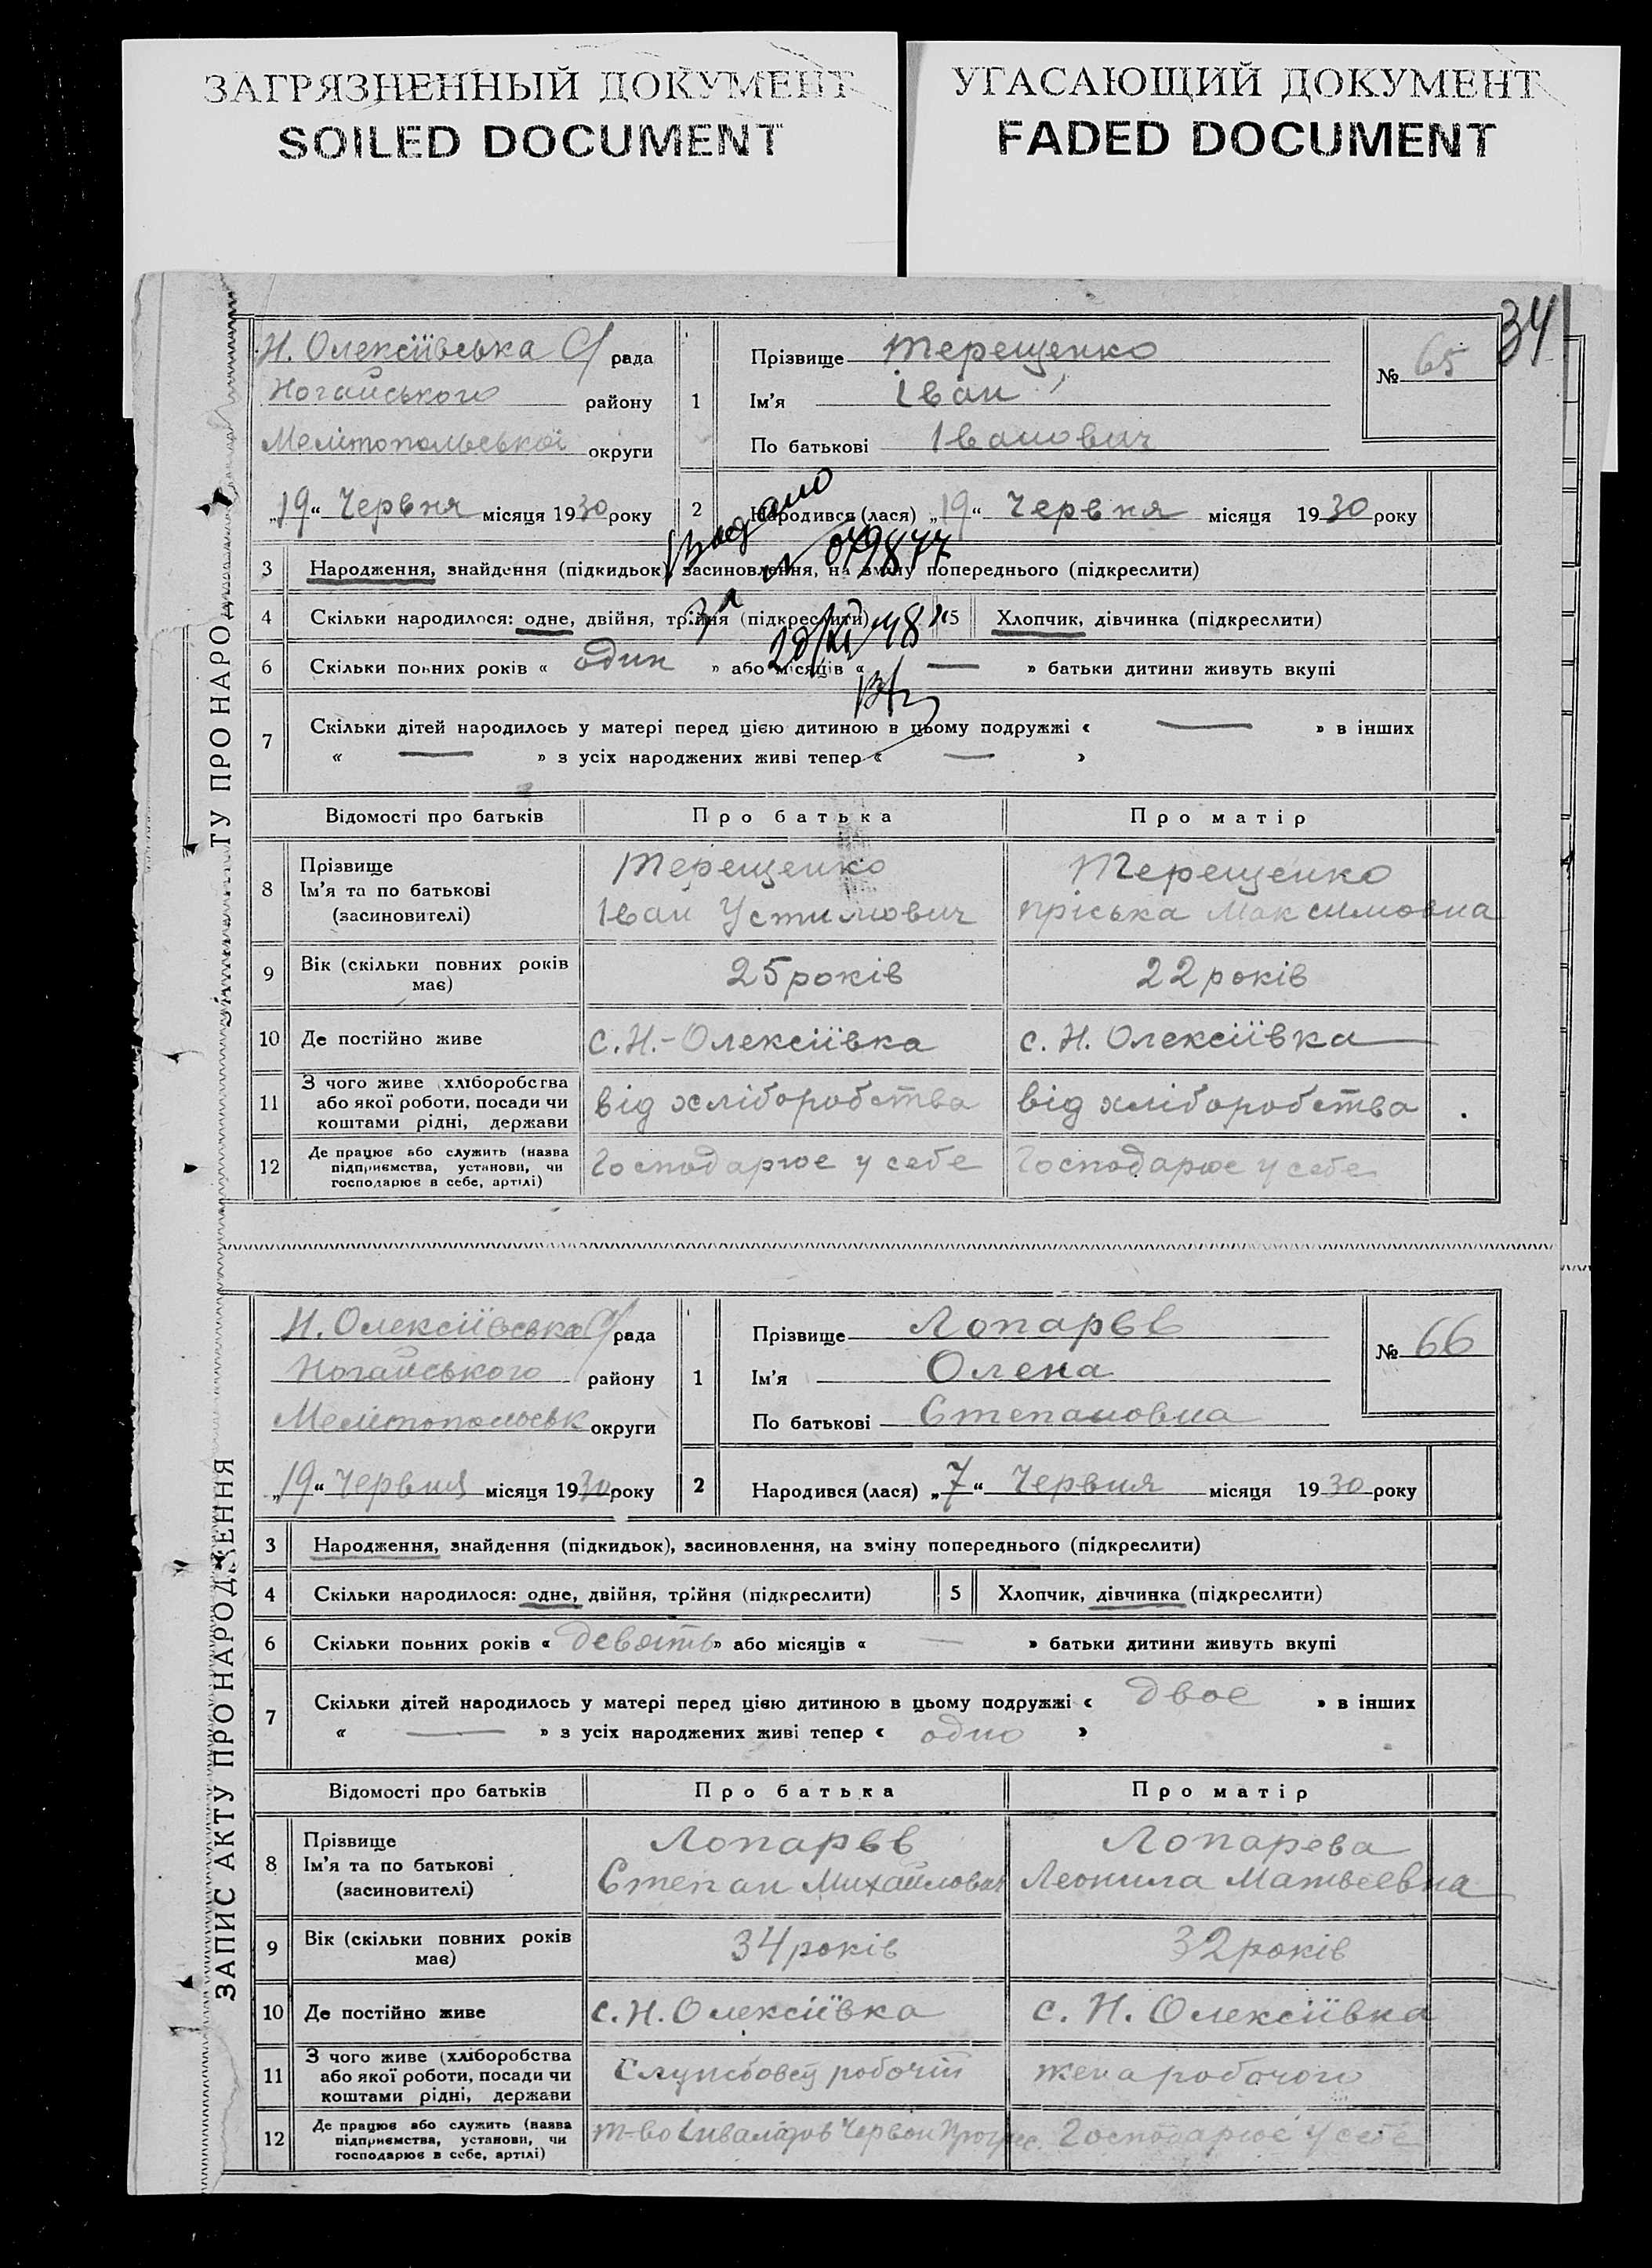 ЗАГРЯЗНЕННЫЙ ДОКУМЕНТ
SOILED DOCUMENT
УГАСАЮЩИЙ ДОКУМЕНТ
FADED DOCUMENT
34
ТУ ПРО НАРОД
Н. Олексіївська С/ рада
Ногайського району
Мелітопольської округи
1
Прізвище Терещенко
Ім'я Іван
По батькові Іванович
№ 65
„19“ Червня місяця 1930 року
2
Народився (лася) „19“ Червня місяця 1930 року
Видано
за № 079877
20/XI 48
3 Народження, знайдення (підкидьок), засиновлення, на зміну попереднього (підкреслити)
4 Скільки народилося: одне, двійня, трійня (підкреслити) 5 Хлопчик, дівчинка (підкреслити)
6 Скільки повних років « один » або місяців « — » батьки дитини живуть вкупі
7 Скільки дітей народилось у матері перед цією дитиною в цьому подружжі « — » в інших
« — » з усіх народжених живі тепер « — »
Відомості про батьків Про батька Про матір
8 Прізвище
Ім'я та по батькові
(засиновителі)
Терещенко
Іван Устимович
Терещенко
Пріська Максимовна
9 Вік (скільки повних років
має)
25 років 22 років
10 Де постійно живе с. Н.-Олексіївка с. Н. Олексіївка
11 З чого живе (хліборобства
або якої роботи, посади чи
коштами рідні, держави
від хліборобства від хліборобства
12 Де працює або служить (назва
підприємства, установи, чи
господарює в себе, артілі)
Господарює у себе Господарює у себе
ЗАПИС АКТУ ПРО НАРОДЖЕННЯ
Н. Олексіївська С/ рада
Ногайського району
Мелітопольськ округи
1
Прізвище Лопарєв
Ім'я Олена
По батькові Степановна
№ 66
„19“ Червня місяця 1930 року
2
Народився (лася) „7“ Червня місяця 1930 року
3 Народження, знайдення (підкидьок), засиновлення, на зміну попереднього (підкреслити)
4 Скільки народилося: одне, двійня, трійня (підкреслити) 5 Хлопчик, дівчинка (підкреслити)
6 Скільки повних років « девять » або місяців « — » батьки дитини живуть вкупі
7 Скільки дітей народилось у матері перед цією дитиною в цьому подружжі « двое » в інших
« — » з усіх народжених живі тепер « одно »
Відомості про батьків Про батька Про матір
8 Прізвище
Ім'я та по батькові
(засиновителі)
Лопарєв
Степан Михайлович
Лопарева
Леонила Матвеевна
9 Вік (скільки повних років
має)
34 років 32 років
10 Де постійно живе с. Н. Олексіївка с. Н. Олексіївка
11 З чого живе (хліборобства
або якої роботи, посади чи
коштами рідні, держави
робочій жена робочого
12 Де працює або служить (назва
підприємства, установи, чи
господарює в себе, артілі)
т-во Інвалідов Червон Прогрес. Господарює у себе